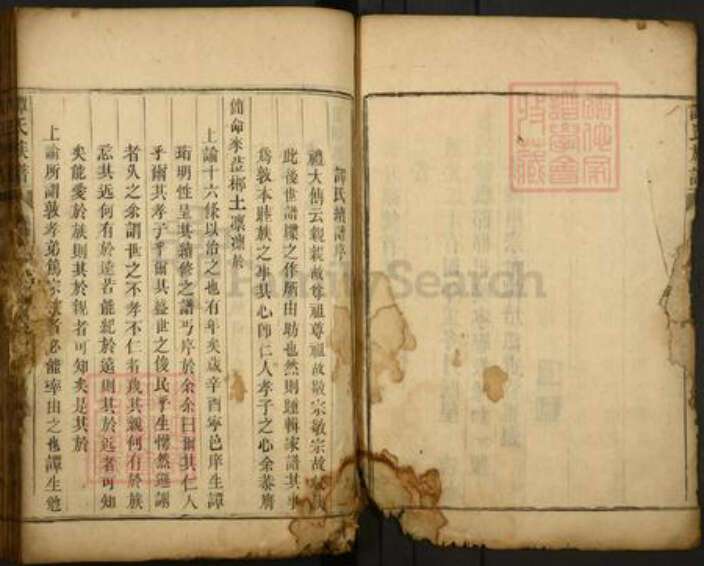 譚氏續譜序
禮大傳云親親故尊祖尊祖故敬宗敬宗故收族
此後世譜牒之作所由昉也然則踵輯家譜其事
為敦本睦族之事其心即仁人孝子之心余恭膺
簡命來蒞梛土凛凛於
上諭十六條以治之也有年矣歲辛酉寧邑庠生譚
珩明性呈其續修之譜丐序於余余曰爾其仁人
乎爾其孝子乎爾其盛世之俊民乎生愕然遜謝
者久之余謂世之不孝不仁者視其親何有於族
忘其近何有於遠若能紀於遠則其於近者可知
矣能愛於族則其於親者可知矣是其於
上諭所謂敦孝弟篤宗族者必能率由之也譚生勉
譚氏族譜
FamilySearch